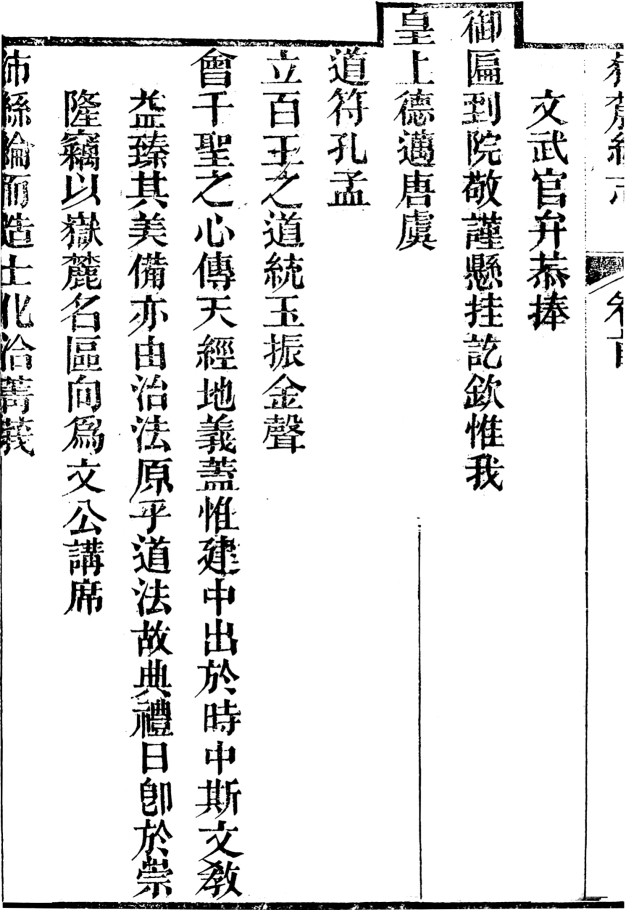 文武官弁恭捧
御匾到院敬謹懸挂訖欽惟我
皇上德邁唐虞
道符孔孟
立百王之道統玉振金聲
會千聖之心傳天經地義蓋惟建中出於時中斯文教
益臻其美備亦由治法原乎道法故典禮日卽於崇
隆竊以嶽麓名區向爲文公講席
沛絲綸而造士化洽菁莪